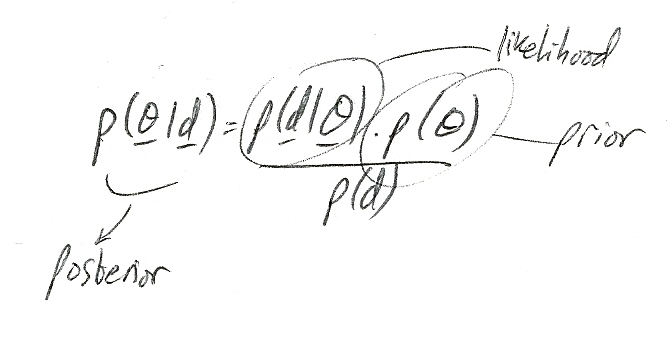 likelihood
p(θ|d) = p(d|θ) · p(θ)
prior
p(d)
posterior